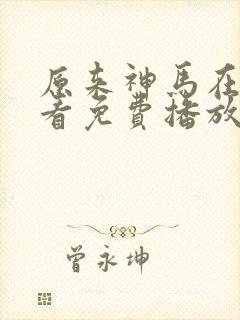 原来神马在
看免費播放
曾永坤